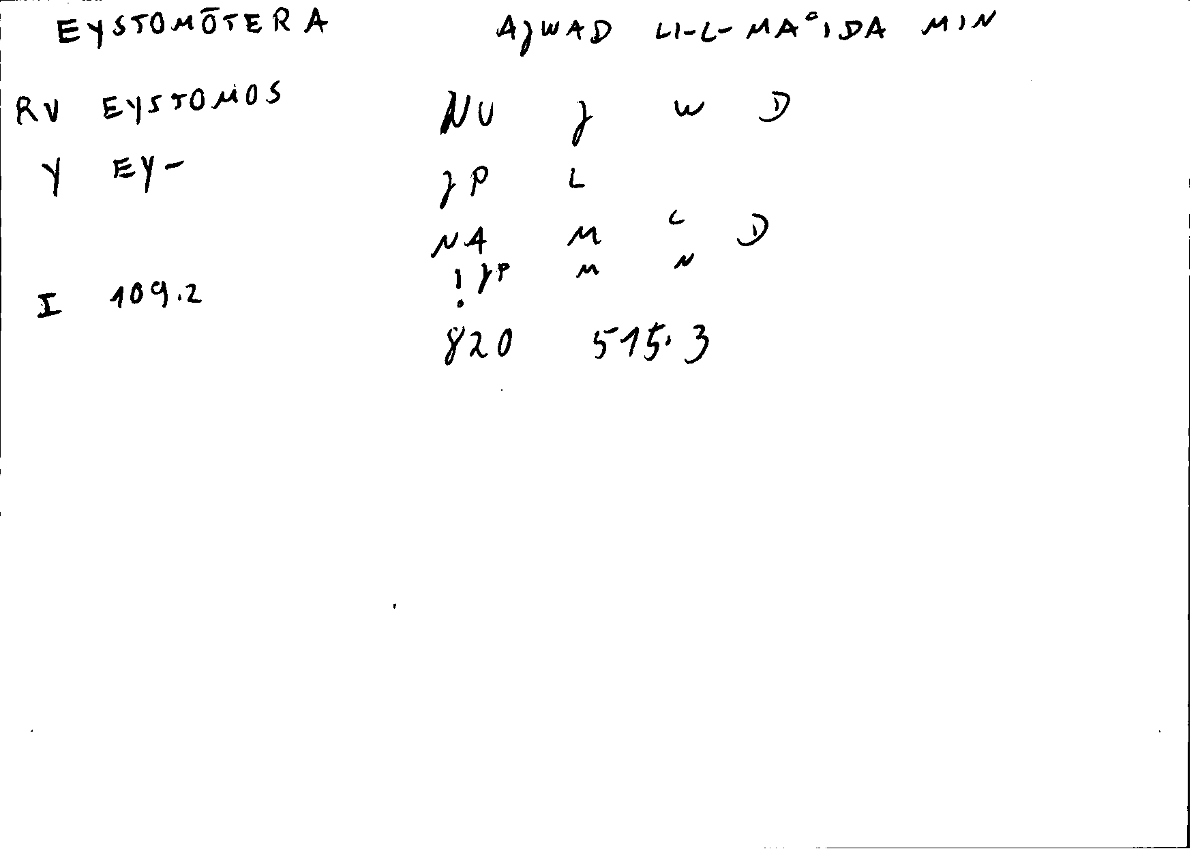 EYSTOMŌTERA AJWAD LI-L-MAʿIDA MIN
RV EYSTOMOS NU J W D
Y EY- JP L
NA M ʿ D
! JP M N
I 109.2
820 515.3